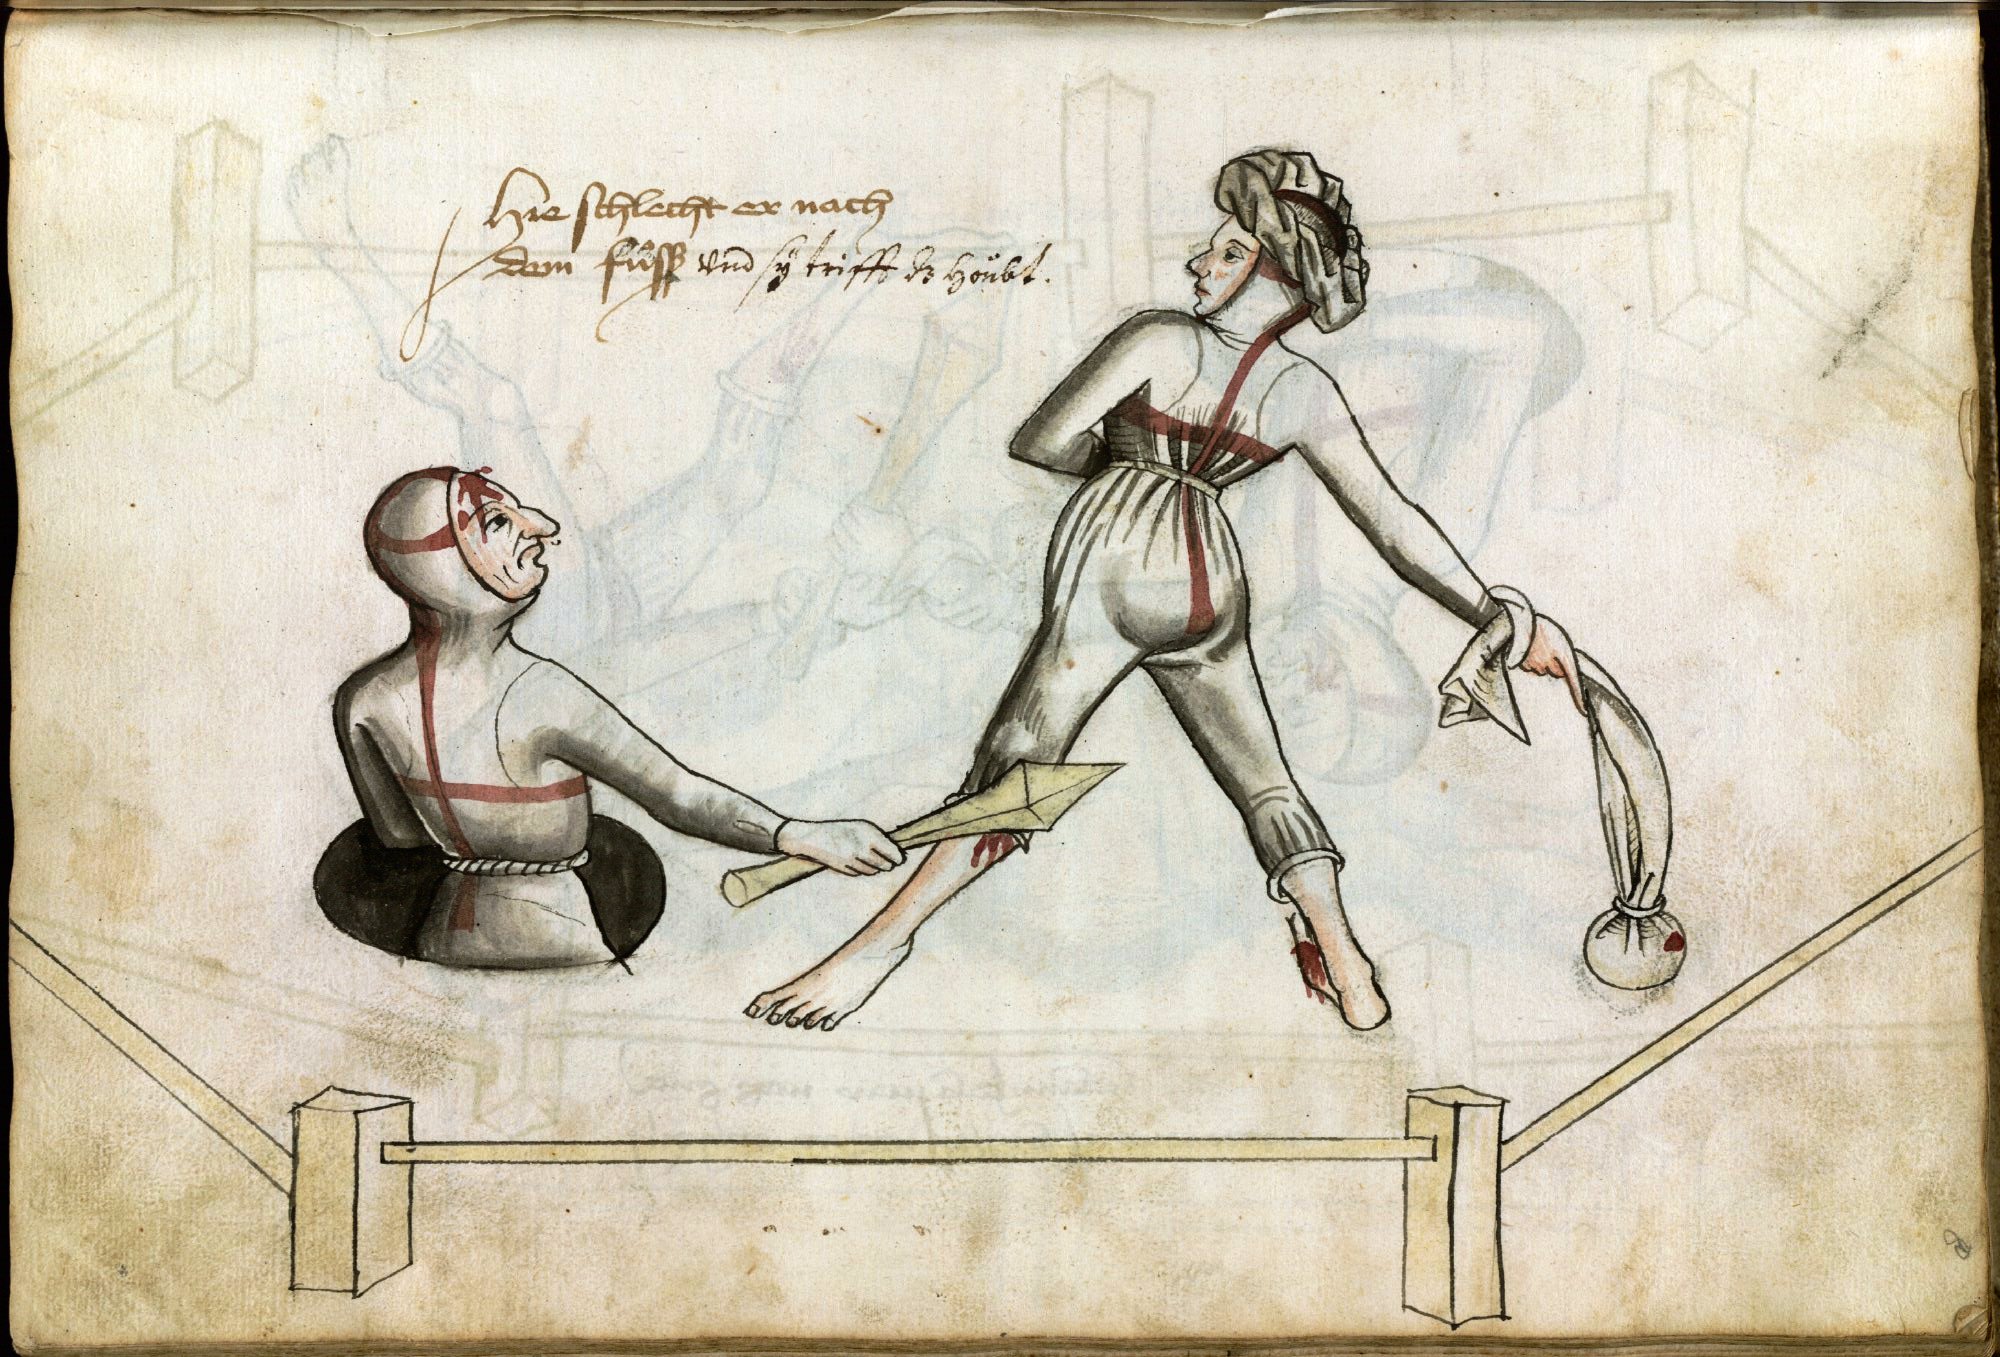 Hie schlecht er nach
dem fuͦsß vnd sÿ trifft dz Hoͤubt.